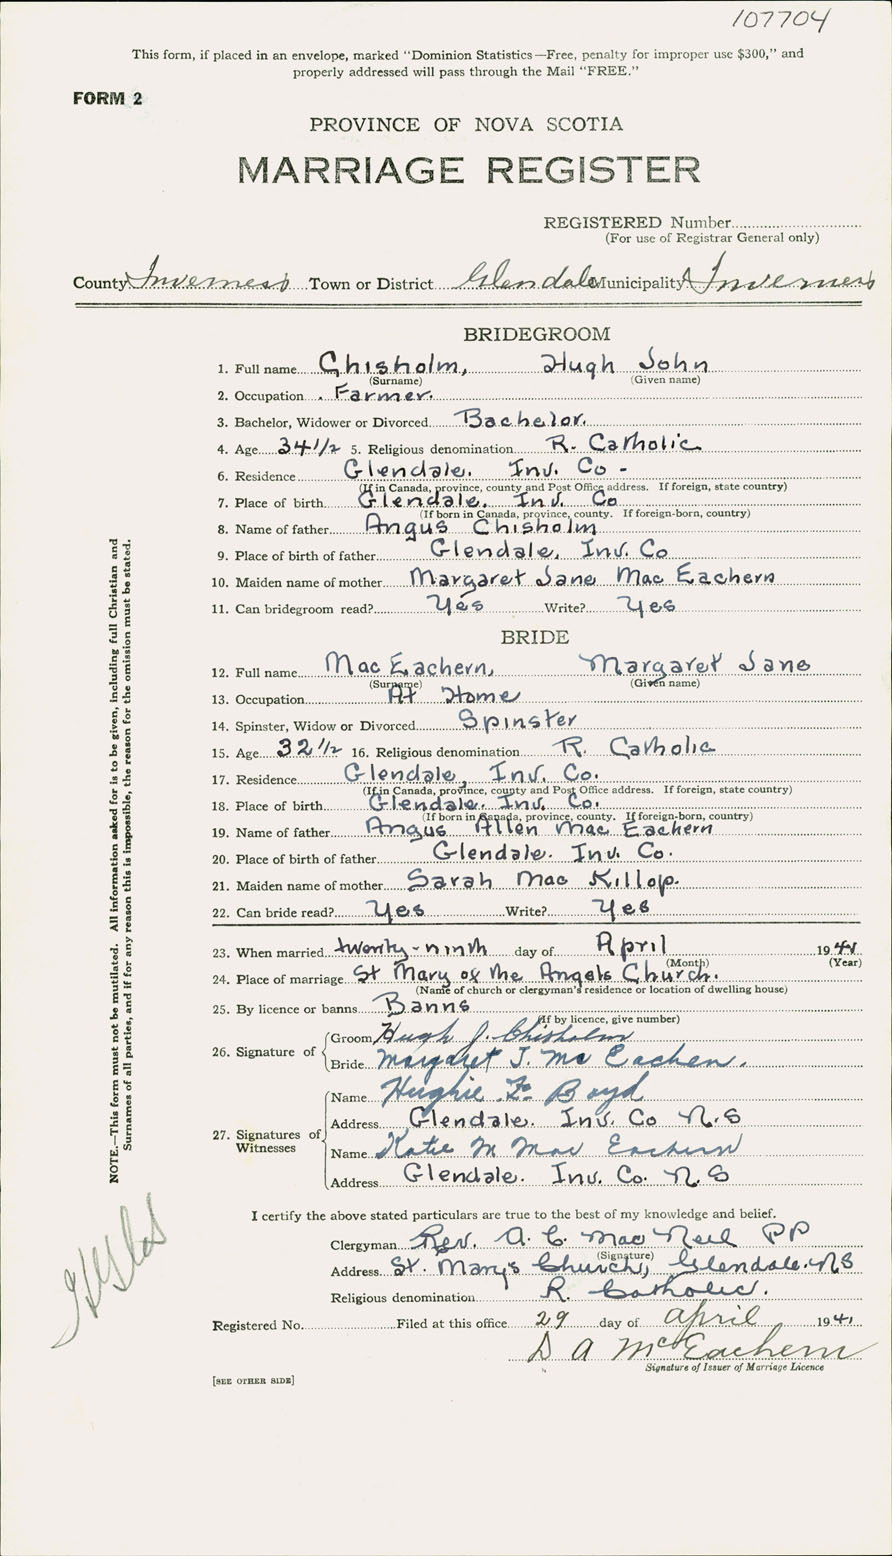 107704
This form, if placed in an envelope, marked "Dominion Statistics—Free, penalty for improper use $300," and
properly addressed will pass through the Mail "FREE."
FORM 2
PROVINCE OF NOVA SCOTIA
MARRIAGE REGISTER
REGISTERED Number
(For use of Registrar General only)
County Inverness Town or District Glendale Municipality Inverness
BRIDEGROOM
1. Full name Chisholm, Hugh John
(Surname) (Given name)
2. Occupation Farmer.
3. Bachelor, Widower or Divorced Bachelor.
4. Age 34 1/2 5. Religious denomination R. Catholic
6. Residence Glendale. Inv. Co -
(If in Canada, province, county and Post Office address. If foreign, state country)
7. Place of birth Glendale, Inv. Co
(If born in Canada, province, county. If foreign-born, country)
8. Name of father Angus Chisholm
9. Place of birth of father Glendale, Inv. Co
10. Maiden name of mother Margaret Jane Mac Eachern
11. Can bridegroom read? Yes Write? Yes
BRIDE
12. Full name Mac Eachern, Margaret Jane
(Surname) (Given name)
13. Occupation At Home
14. Spinster, Widow or Divorced Spinster
15. Age 32 1/2 16. Religious denomination R. Catholic
17. Residence Glendale, Inv. Co.
(If in Canada, province, county and Post Office address. If foreign, state country)
18. Place of birth Glendale. Inv. Co.
(If born in Canada, province, county. If foreign-born, country)
19. Name of father Angus Allen Mac Eachern
20. Place of birth of father Glendale. Inv. Co.
21. Maiden name of mother Sarah Mac Killop.
22. Can bride read? Yes Write? Yes
23. When married twenty-ninth day of April 1941
(Month) (Year)
24. Place of marriage St Mary of the Angels Church.
(Name of church or clergyman's residence or location of dwelling house)
25. By licence or banns Banns
(If by licence, give number)
26. Signature of Groom Hugh J. Chisholm
Bride Margaret J. Mc Eachen.
27. Signatures of Witnesses
Name Hughie F. Boyd
Address Glendale. Inv. Co N.S
Name Katie M Mac Eachern
Address Glendale. Inv. Co. N.S
I certify the above stated particulars are true to the best of my knowledge and belief.
Clergyman Rev. A. C. Mac Neil PP
(Signature)
Address St. Mary's Church, Glendale. N S
Religious denomination R. Catholic.
Registered No. Filed at this office 29 day of April 1941
D A McEachern
Signature of Issuer of Marriage Licence
[SEE OTHER SIDE]
NOTE.—This form must not be mutilated. All information asked for is to be given, including full Christian and
Surnames of all parties, and if for any reason this is impossible, the reason for the omission must be stated.